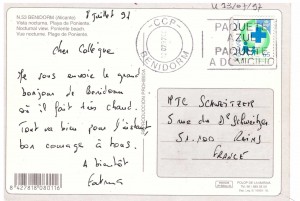 N.53 BENIDORM (Alicante)
Vista nocturna. Playa de Poniente.
Nocturnal view. Poniente beach.
Vue nocturne. Plage de Poniente.
8 Juillet 97
Cher Collègue
Je vous envoie le grand
bonjour de Benidorm
où il fait très chaud.
Tout va bien pour l'instant
bon courage à tous.
A bientôt
Fatima
8 427818 080116
CCP
BENIDORM
PAQUETE
AZUL
PAQUETE
A DOMICILIO
MJC SCHWEITZER
5 rue du Dr Schweitzer
51.100 Reims
FRANCE